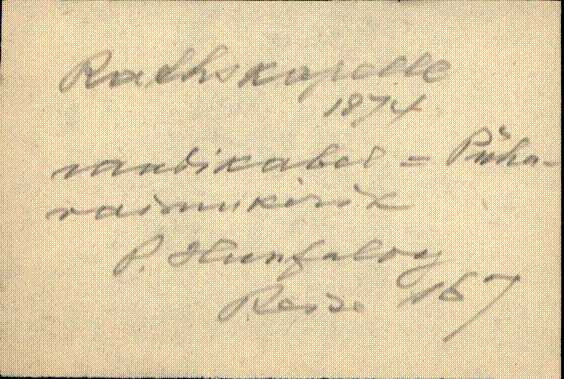 Rathskapelle
1874
raadikabel = Püha-
vaimukirik
P. Hunfalvy
Reise 167